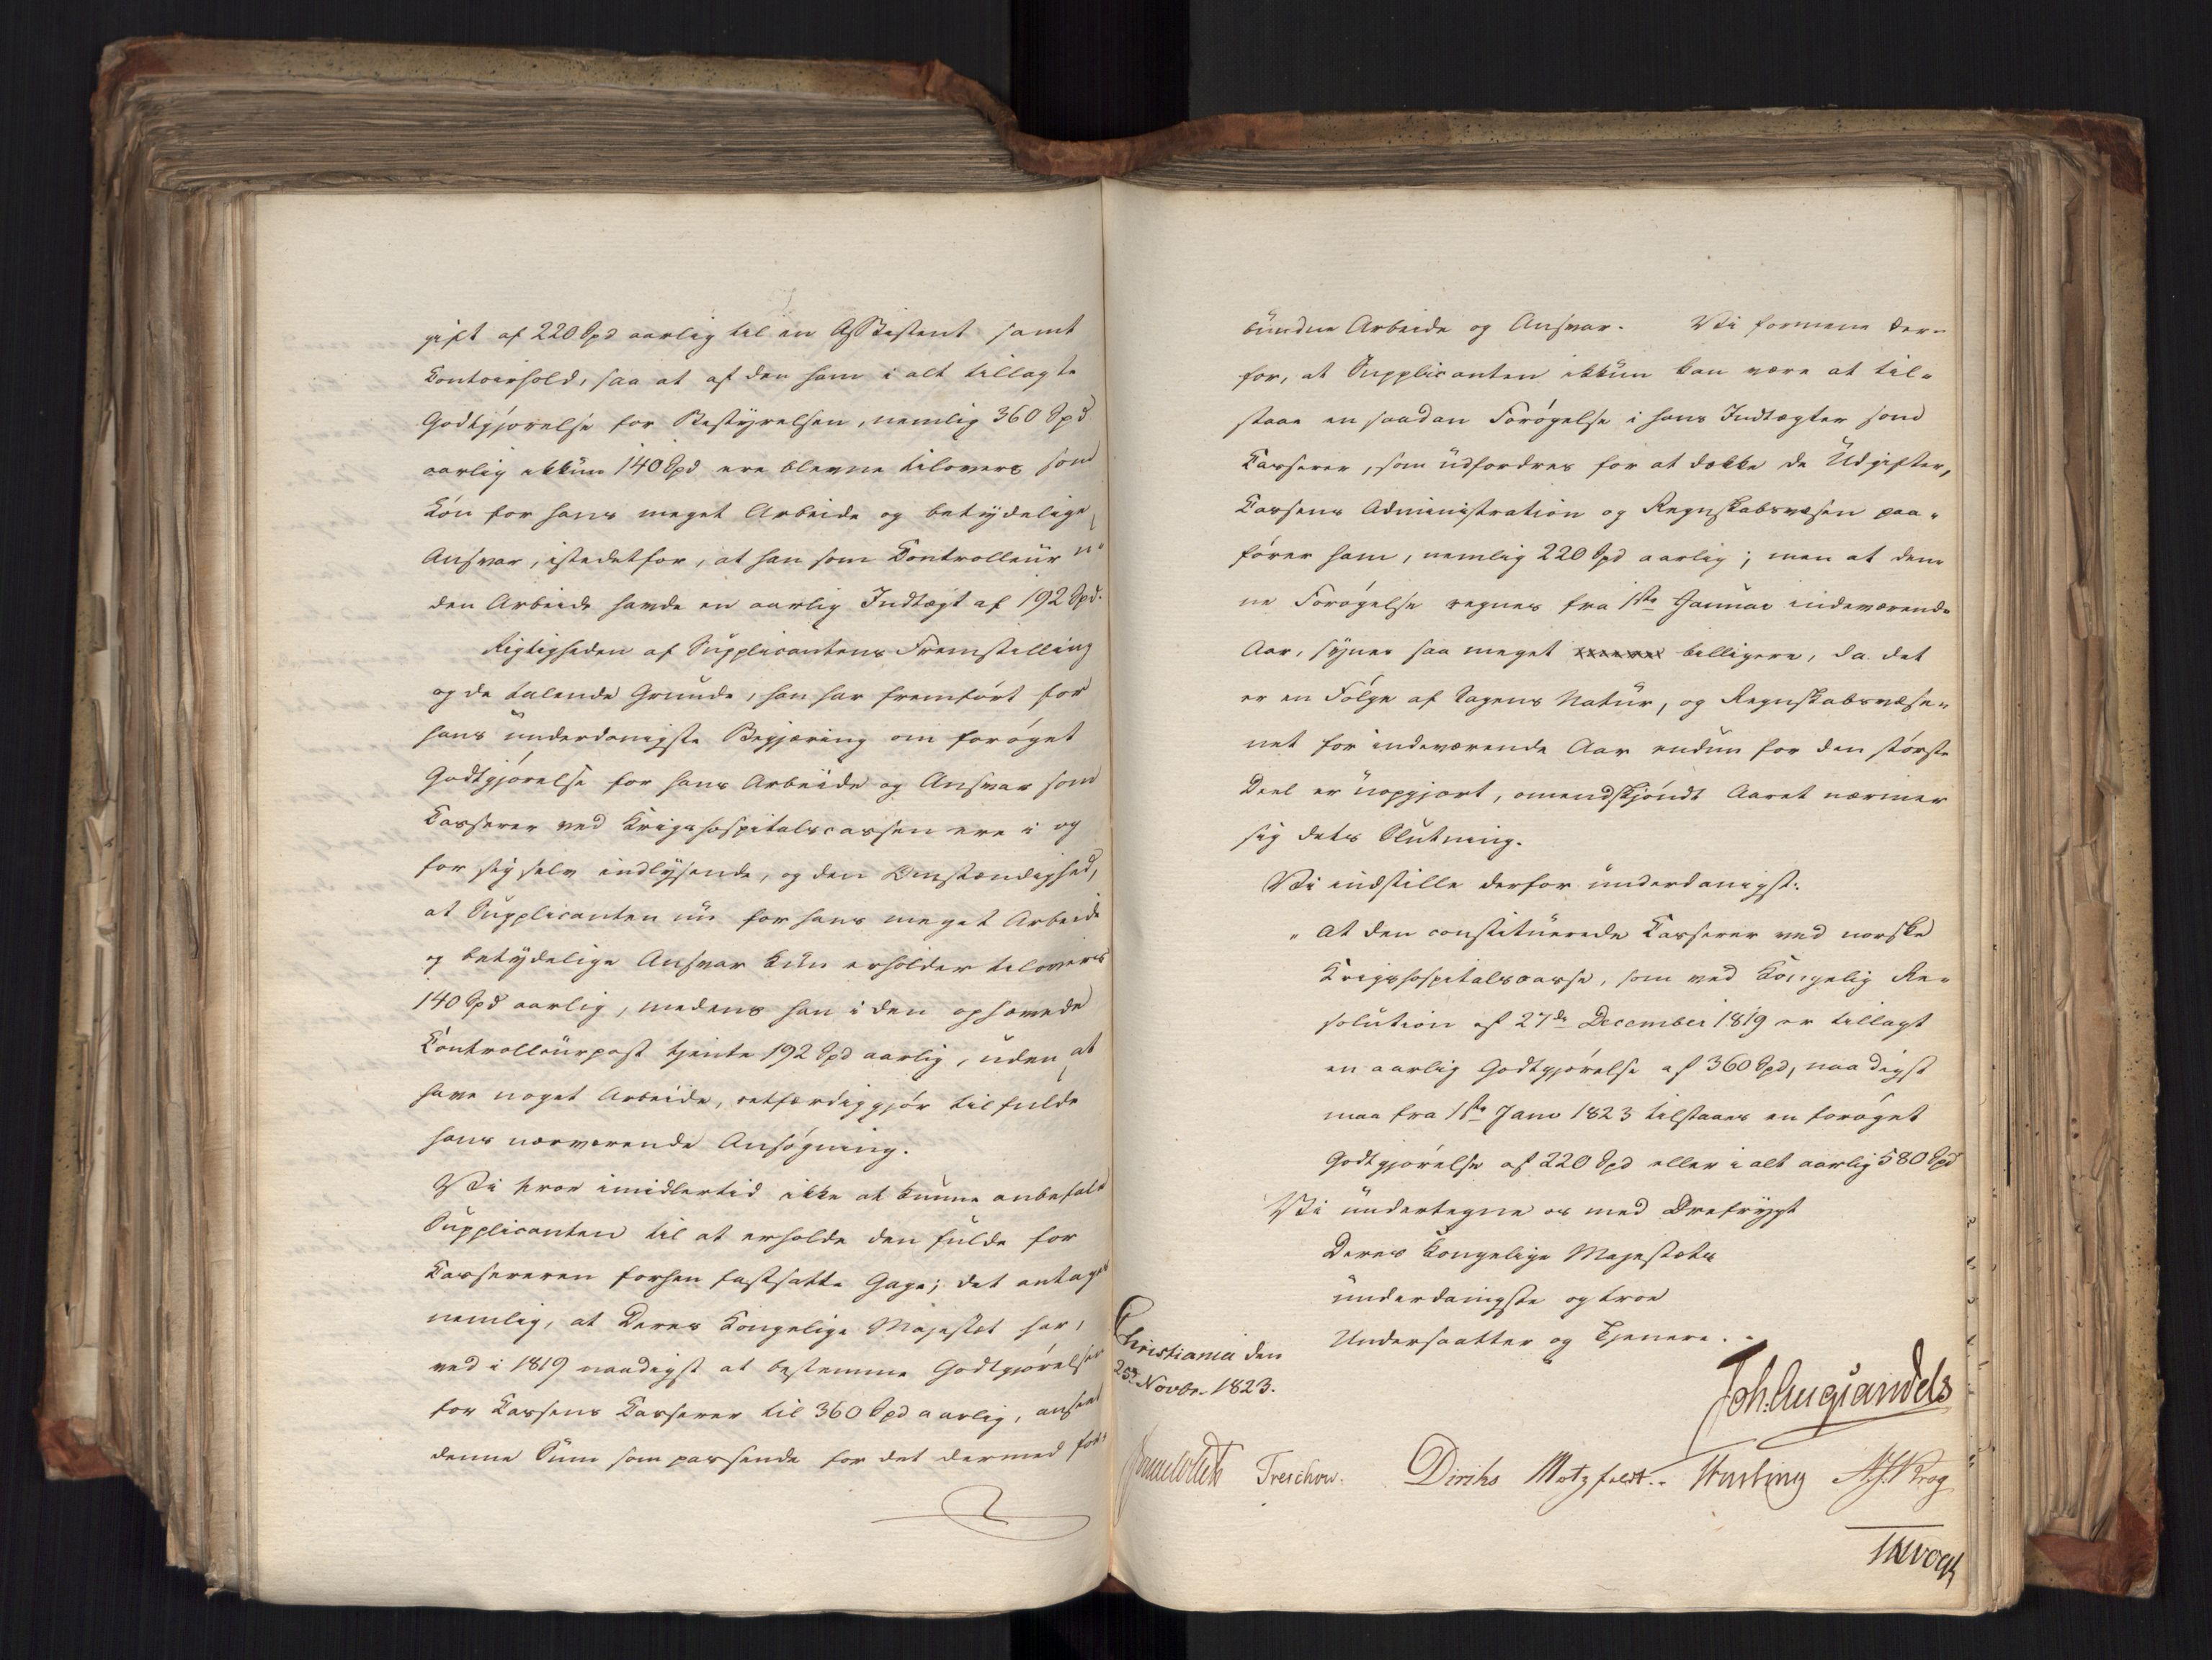 gift af 220 Spd aarlig til en Assistent samt
Contoirhold, saa at af den ham i alt tillagte
Godtgjørelse for Bestyrelsen, nemlig 360 Spd
aarlig ikkun 140 Spd ere blevne tilovers som
Løn for hans meget Arbeide og betydelige
Ansvar, istedetfor, at han som Controlleur u-
den Arbeide havde en aarlig Indtægt af 192 Spd.
Rigtigheden af Supplicantens Fremstilling
og de talende Grunde, han har fremført for
hans underdanigste Begjæring om forøget
Godtgjørelse for hans Arbeide og Ansvar som
Casserer ved Krigshospitalscassen ere i og
for sig selv indlysende, og den Omstændighed,
at Supplicanten nu for hans meget Arbeide
og betydelige Ansvar kun erholder tilovers
140 Spd aarlig, medens han i den ophævede
Controlleurpost tjente 192 Spd aarlig, uden at
have noget Arbeide, retfærdiggjør tilfulde
hans nærværende Ansøgning.
Vi troe imidlertid ikke at kunne anbefale
Supplicanten til at erholde den fulde for
Cassereren forhen fastsatte Gage; det antages
nemlig, at Deres Kongelige Majestæt har,
ved i 1819 naadigst at bestemme Godtgjørelsen
for Cassens Casserer til 360 Spd aarlig, anseet
denne Sum som passende for det dermed for-
bundne Arbeide og Ansvar. Vi formene der-
for, at Supplicanten ikkun kan være at til-
staae en saadan Forøgelse i hans Indtægter som
Casserer, som udfordres for at dække de Udgifter,
Cassens Administration og Regnskabsvæsen paa-
fører ham, nemlig 220 Spd aarlig; men at den-
ne Forøgelse regnes fra 1ste Januar indeværende
Aar, synes saa meget billigere, da det
er en Følge af Sagens Natur, og Regnskabsvæse-
net for indeværende Aar endnu for den største
Deel er uopgjort, omendskjøndt Aaret nærmer
sig dets Slutning.
Vi indstille derfor underdanigst:
" At den constituerede Casserer ved norske
Krigshospitalscasse, som ved Kongelig Re-
solution af 27de December 1819 er tillagt
en aarlig Godtgjørelse af 360 Spd, naadigst
maa fra 1ste Janr 1823 tilstaaes en forøget
Godtgjørelse af 220 Spd eller i alt aarlig 580 Spd
Vi undertegne os med Ærefrygt
Deres Kongelige Majestæts
underdanigste og troe
Undersaatter og Tjenere.
Christiania den
25de Novbr. 1823.
Joh. Aug Sandels
Sommerhielm Treschow. Diriks Motzfeldt. Krog
JHVogt